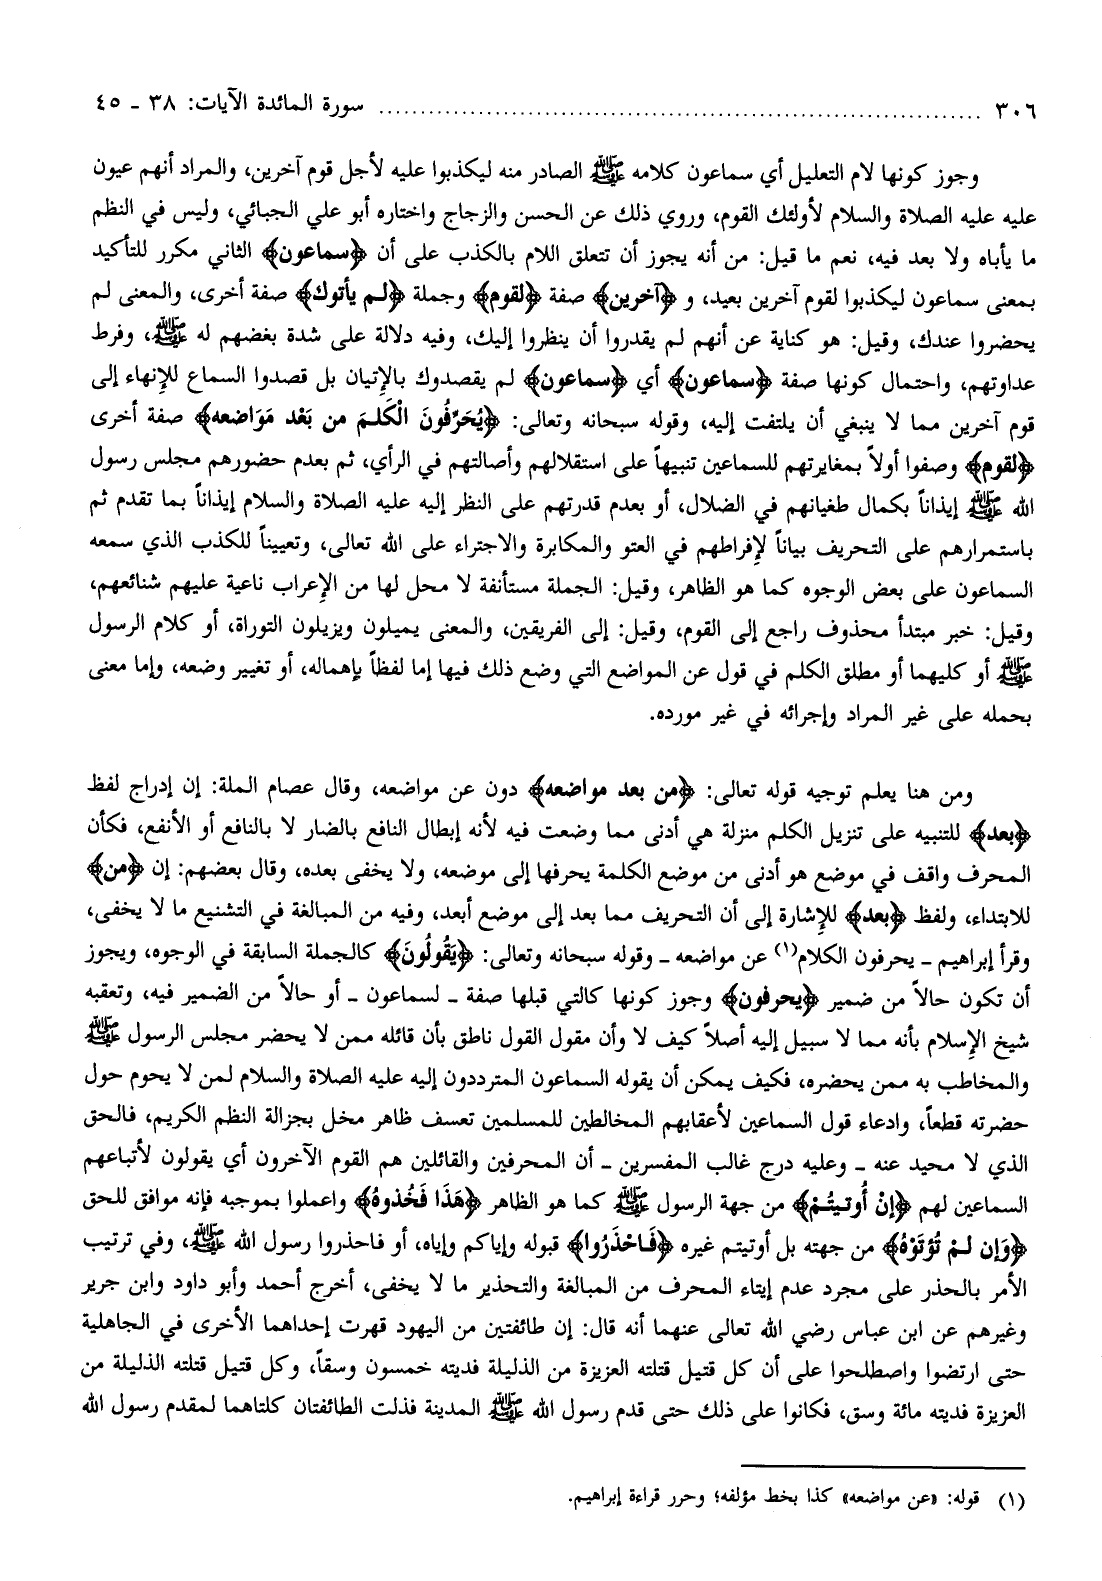 ٣٠٦ ........................................ سورة المائدة الآيات: ٣٨ ـ ٤٥
وجوز كونها لام التعليل أي سماعون كلامه ﷺ الصادر منه ليكذبوا عليه لأجل قوم آخرين، والمراد أنهم عيون
عليه عليه الصلاة والسلام لأولئك القوم، وروي ذلك عن الحسن والزجاج واختاره أبو علي الجبائي، وليس في النظم
ما يأباه ولا بعد فيه، نعم ما قيل: من أنه يجوز أن تتعلق اللام بالكذب على أن ﴿سماعون﴾ الثاني مكرر للتأكيد
بمعنى سماعون ليكذبوا لقوم آخرين بعيد، و ﴿آخرين﴾ صفة ﴿لقوم﴾ وجملة ﴿لم يأتوك﴾ صفة أخرى، والمعنى لم
يحضروا عندك، وقيل: هو كناية عن أنهم لم يقدروا أن ينظروا إليك، وفيه دلالة على شدة بغضهم له ﷺ، وفرط
عداوتهم، واحتمال كونها صفة ﴿سماعون﴾ أي ﴿سماعون﴾ لم يقصدوك بالإتيان بل قصدوا السماع للإنهاء إلى
قوم آخرين مما لا ينبغي أن يلتفت إليه، وقوله سبحانه وتعالى: ﴿يُحَرِّفُونَ الْكَلِمَ من بَعْد مَوَاضعه﴾ صفة أخرى
﴿لقوم﴾ وصفوا أولاً بمغايرتهم للسماعين تنبيهاً على استقلالهم وأصالتهم في الرأي، ثم بعدم حضورهم مجلس رسول
الله ﷺ إيذاناً بكمال طغيانهم في الضلال، أو بعدم قدرتهم على النظر إليه عليه الصلاة والسلام إيذاناً بما تقدم ثم
باستمرارهم على التحريف بياناً لإفراطهم في العتو والمكابرة والاجتراء على الله تعالى، وتعييناً للكذب الذي سمعه
السماعون على بعض الوجوه كما هو الظاهر، وقيل: الجملة مستأنفة لا محل لها من الإعراب ناعية عليهم شنائعهم،
وقيل: خبر مبتدأ محذوف راجع إلى القوم، وقيل: إلى الفريقين، والمعنى يميلون ويزيلون التوراة، أو كلام الرسول
ﷺ أو كليهما أو مطلق الكلم في قول عن المواضع التي وضع ذلك فيها إما لفظاً بإهماله، أو تغيير وضعه، وإما معنى
بحمله على غير المراد وإجرائه في غير مورده.
ومن هنا يعلم توجيه قوله تعالى: ﴿من بعد مواضعه﴾ دون عن مواضعه، وقال عصام الملة: إن إدراج لفظ
﴿بعد﴾ للتنبيه على تنزيل الكلم منزلة هي أدنى مما وضعت فيه لأنه إبطال النافع بالضار لا بالنافع أو الأنفع، فكأن
المحرف واقف في موضع هو أدنى من موضع الكلمة يحرفها إلى موضعه، ولا يخفى بعده، وقال بعضهم: إن ﴿من﴾
للابتداء، ولفظ ﴿بعد﴾ للإشارة إلى أن التحريف مما بعد إلى موضع أبعد، وفيه من المبالغة في التشنيع ما لا يخفى،
وقرأ إبراهيم ـ يحرفون الكلام(١) عن مواضعه ـ وقوله سبحانه وتعالى: ﴿يَقُولُونَ﴾ كالجملة السابقة في الوجوه، ويجوز
أن تكون حالاً من ضمير ﴿يحرفون﴾ وجوز كونها كالتي قبلها صفة ـ لسماعون ـ أو حالاً من الضمير فيه، وتعقبه
شيخ الإسلام بأنه مما لا سبيل إليه أصلاً كيف لا وأن مقول القول ناطق بأن قائله ممن لا يحضر مجلس الرسول ﷺ
والمخاطب به ممن يحضره، فكيف يمكن أن يقوله السماعون المترددون إليه عليه الصلاة والسلام لمن لا يحوم حول
حضرته قطعاً، وادعاء قول السماعين لأعقابهم المخالطين للمسلمين تعسف ظاهر مخل بجزالة النظم الكريم، فالحق
الذي لا محيد عنه ـ وعليه درج غالب المفسرين ـ أن المحرفين والقائلين هم القوم الآخرون أي يقولون لأتباعهم
السماعين لهم ﴿إنْ أُوتيتُمْ﴾ من جهة الرسول ﷺ كما هو الظاهر ﴿هَذَا فَخُذوهُ﴾ واعملوا بموجبه فإنه موافق للحق
﴿وَإن لمْ تُؤتَوْهُ﴾ من جهته بل أوتيتم غيره ﴿فَاحْذَرُوا﴾ قبوله وإياكم وإياه، أو فاحذروا رسول الله ﷺ، وفي ترتيب
الأمر بالحذر على مجرد عدم إيتاء المحرف من المبالغة والتحذير ما لا يخفى، أخرج أحمد وأبو داود وابن جرير
وغيرهم عن ابن عباس رضي الله تعالى عنهما أنه قال: إن طائفتين من اليهود قهرت إحداهما الأخرى في الجاهلية
حتى ارتضوا واصطلحوا على أن كل قتيل قتلته العزيزة من الذليلة فديته خمسون وسقاً، وكل قتيل قتلته الذليلة من
العزيزة فديته مائة وسق، فكانوا على ذلك حتى قدم رسول الله ﷺ المدينة فذلت الطائفتان كلتاهما لمقدم رسول الله
(١) قوله: «عن مواضعه» كذا بخط مؤلفه؛ وحرر قراءة إبراهيم.